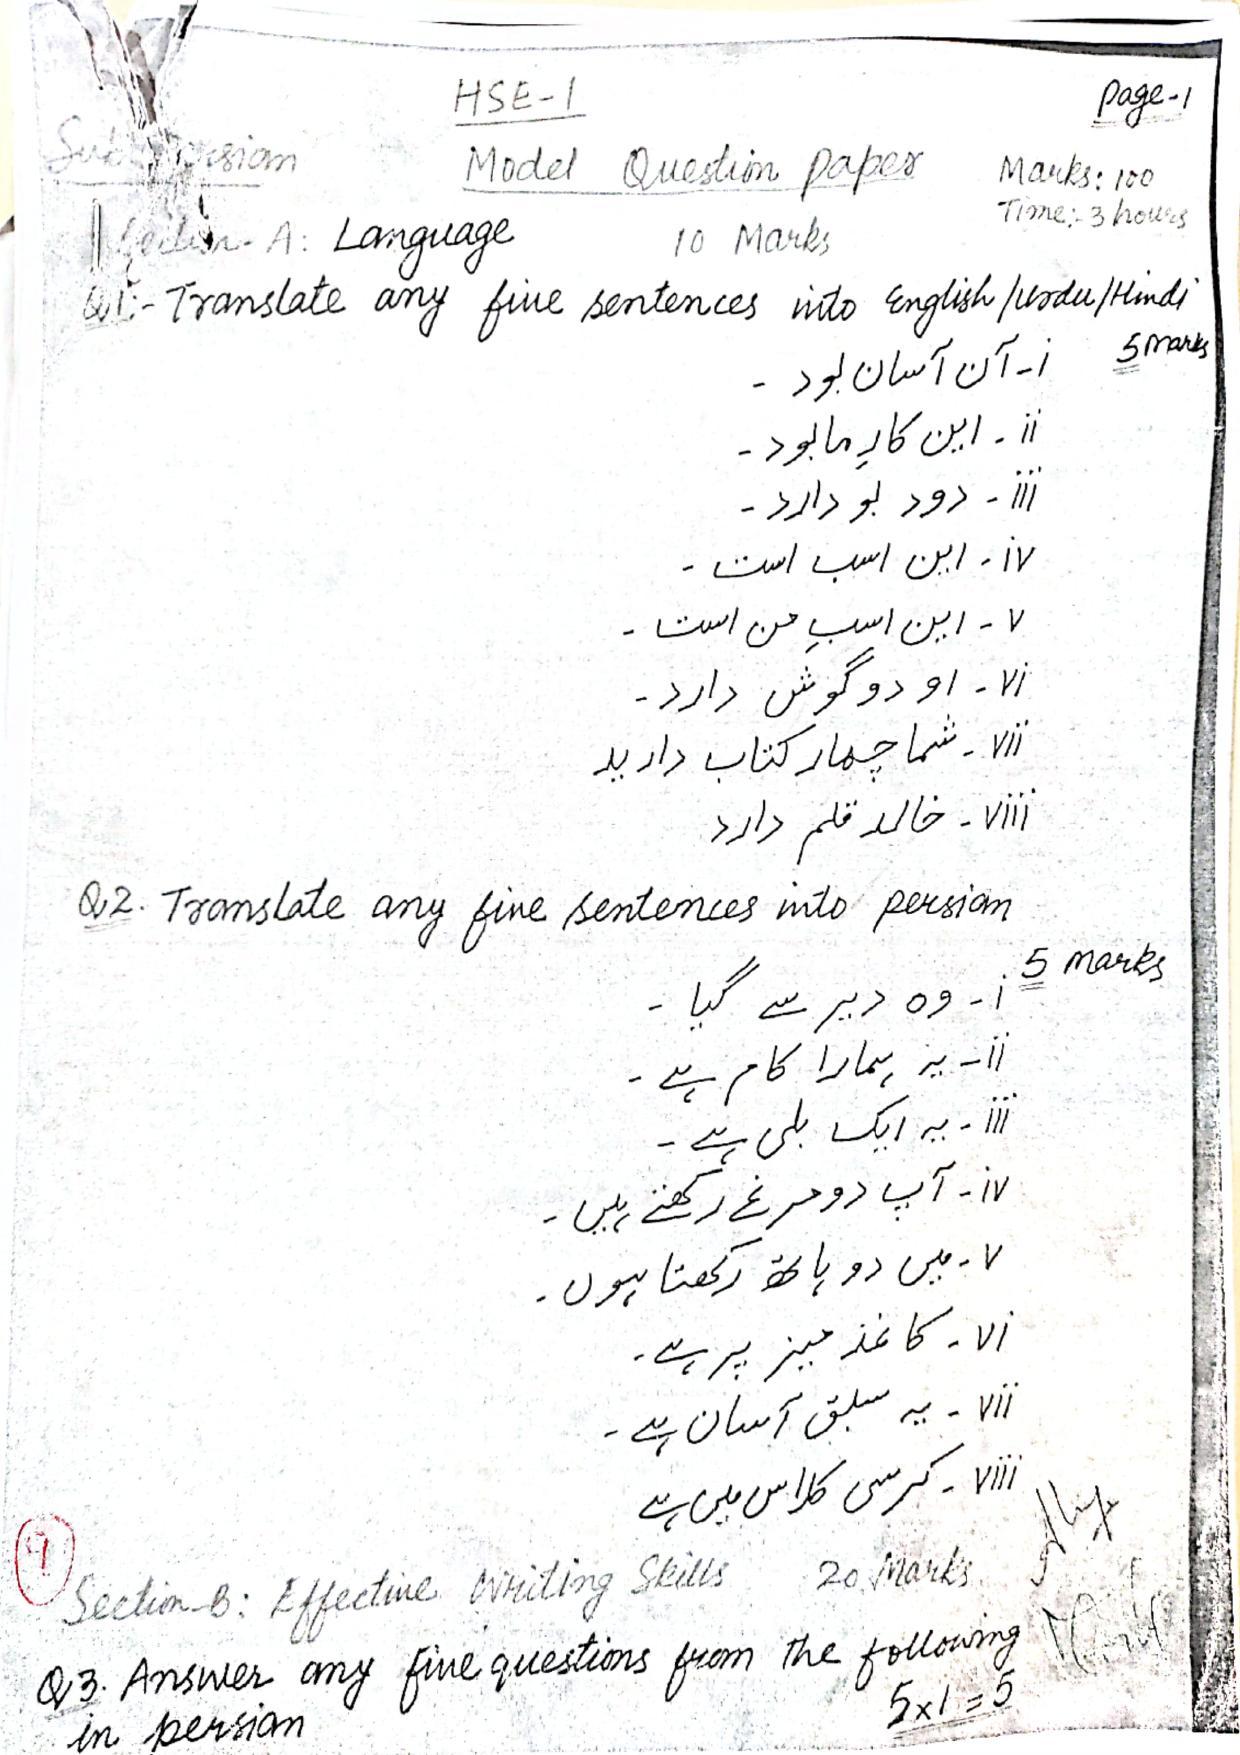 HSE-1
Page-1
Sub: Persian
Model Question paper
Marks: 100
Time:- 3 hours
Section-A: Language 10 Marks
Q1:- Translate any five sentences into English/Urdu/Hindi
5 Marks
i- آن آسان بود -
ii - این کارِ ما بود -
iii - دود بو دارد -
iv - این اسب است -
v - این اسبِ من است -
vi - او دو گوش دارد -
vii - شما چہار کتاب دارید
viii - خالد قلم دارد
Q2. Translate any five sentences into persian
5 Marks
i - وہ دیر سے گیا -
ii - یہ ہمارا کام ہے -
iii - یہ ایک بلی ہے -
iv - آپ دو مرغے رکھتے ہیں -
v - میں دو ہاتھ رکھتا ہوں -
vi - کاغذ میز پر ہے -
vii - یہ سبق آسان ہے -
viii - کرسی کلاس میں ہے
Section-B: Effective Writing Skills 20 Marks
Q3. Answer any five questions from the following
in persian 5x1=5